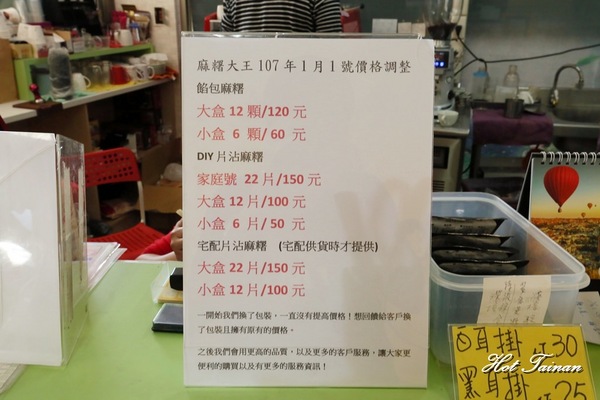 麻糬大王 107 年 1 月 1 號價格調整
餡包麻糬
大盒 12 顆/120 元
小盒 6 顆/ 60 元
DIY 片沾麻糬
家庭號 22 片/150 元
大盒 12 片/100 元
小盒 6 片/ 50 元
宅配片沾麻糬 (宅配供貨時才提供)
大盒 22 片/150 元
小盒 12 片/100 元
一開始我們換了包裝，一直沒有提高價格！想回饋給客戶換
了包裝且擁有原有的價格。
之後我們會用更高的品質，以及更多的客戶服務，讓大家更
便利的購買以及有更多的服務資訊！
耳掛 30
黑耳掛 25
Hot Tainan